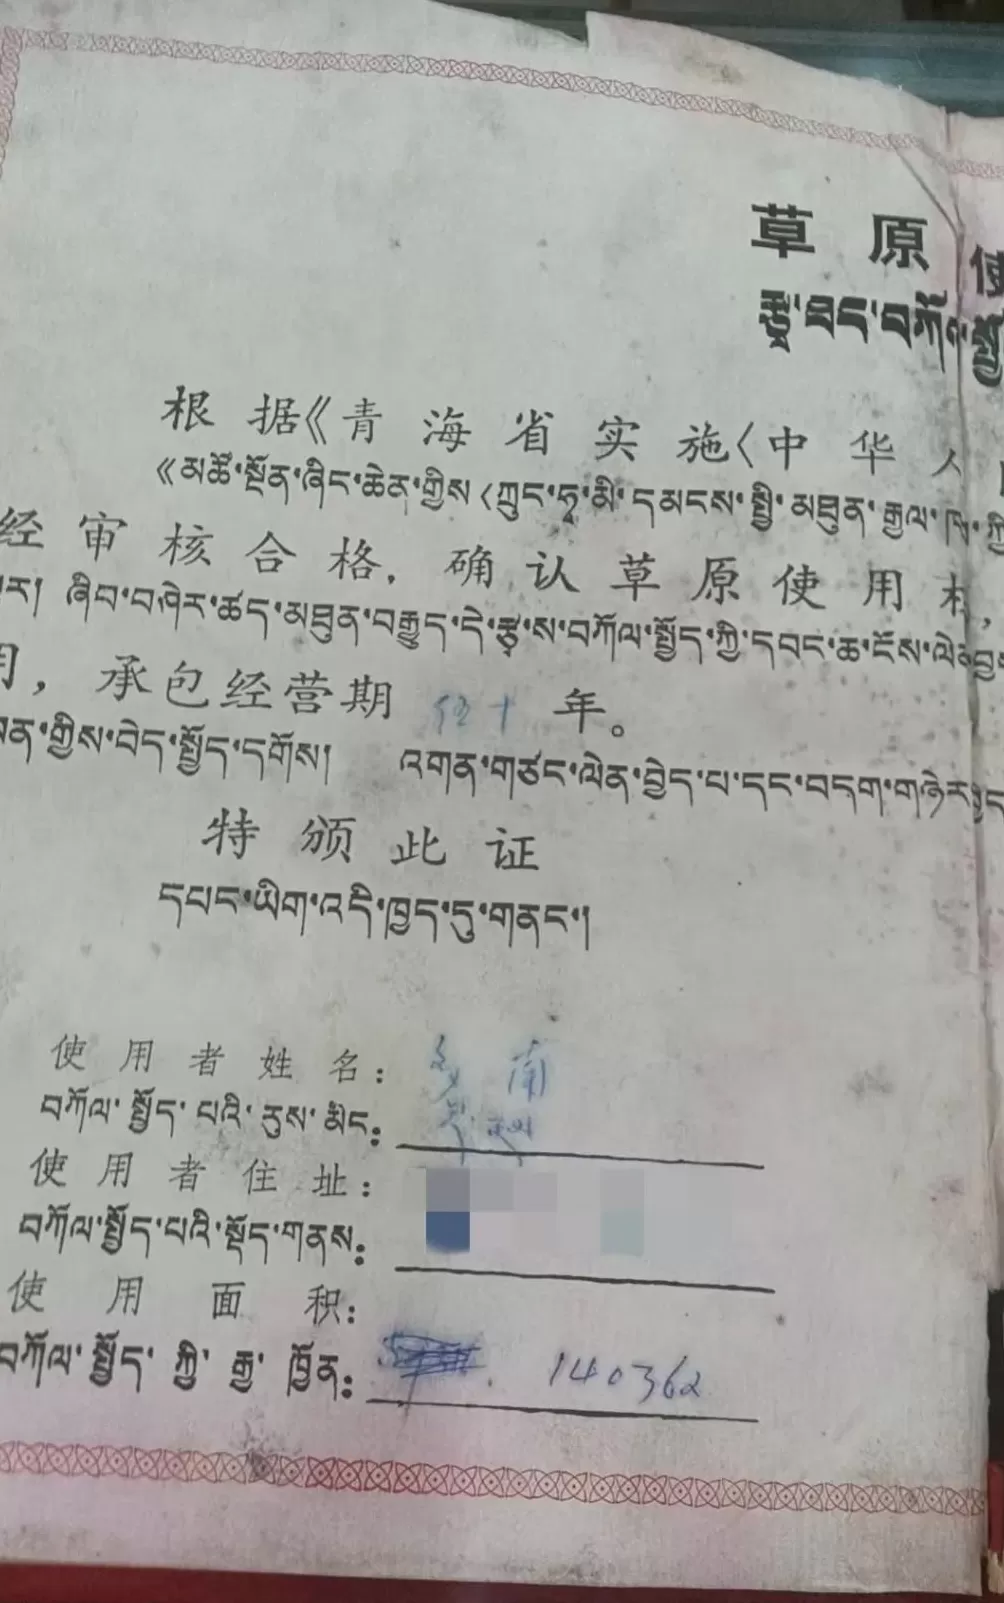 草原使
རྩྭ་ཐང་བཀོལ་སྤྱོད
根据《青海省实施〈中华人
《མཚོ་སྔོན་ཞིང་ཆེན་གྱིས〈ཀྲུང་ཧྭ་མི་དམངས་སྤྱི་མཐུན་རྒྱལ་ཁབ་ཀྱི
经审核合格，确认草原使用权，
པར། ཞིབ་བཤེར་ཚད་མཐུན་བརྒྱུད་དེ་རྩྭ་ས་བཀོལ་སྤྱོད་ཀྱི་དབང་ཆ་ངོས་ལེན་བྱས
用，承包经营期 五十 年。
གྱིས་བེད་སྤྱོད་དགོས། འགན་གཙང་ལེན་བྱེད་པ་དང་བདག་གཉེར
特颁此证
དཔང་ཡིག་འདི་ཁྱད་དུ་གནང་།
使用者姓名： 南
བཀོལ་སྤྱོད་པའི་རུས་མིང：
使用者住址：
བཀོལ་སྤྱོད་པའི་སྡོད་གནས：
使用面积：
བཀོལ་སྤྱོད་ཀྱི་རྒྱ་ཁྱོན： 140362